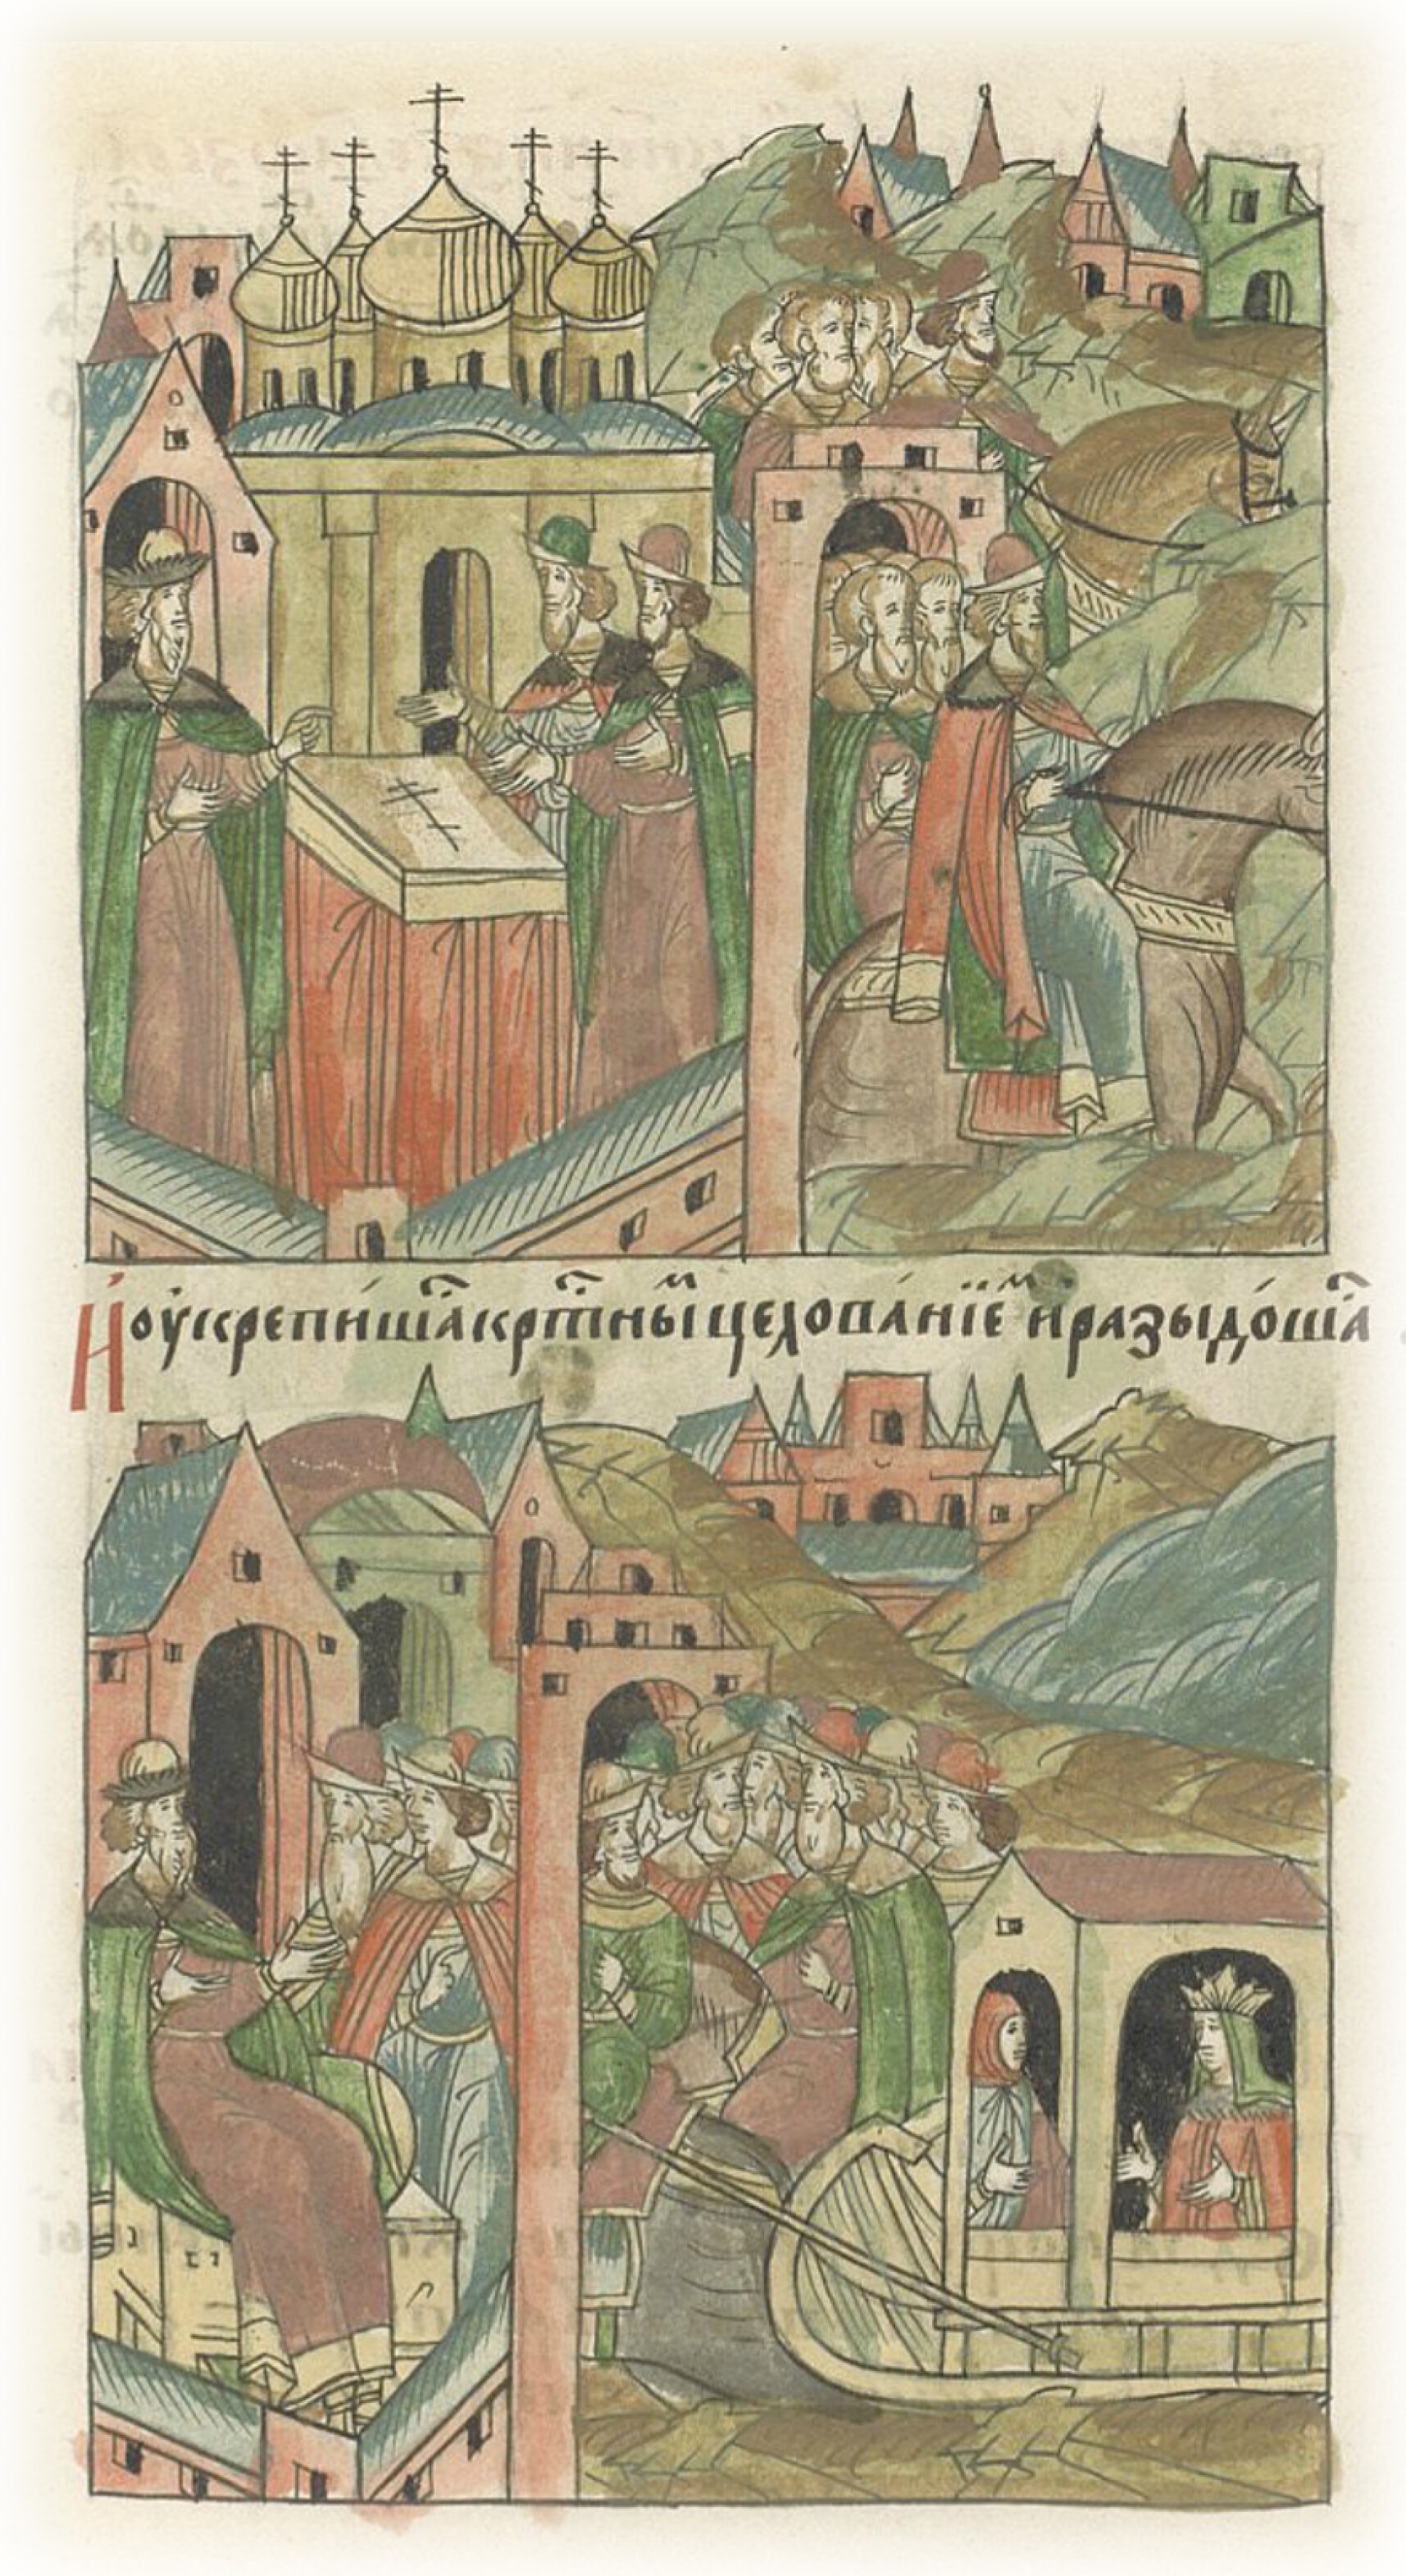 И оукрепишаⷭ҇ крⷭ҇тныⷨ целованїеⷨ и разыдошаⷭ҇